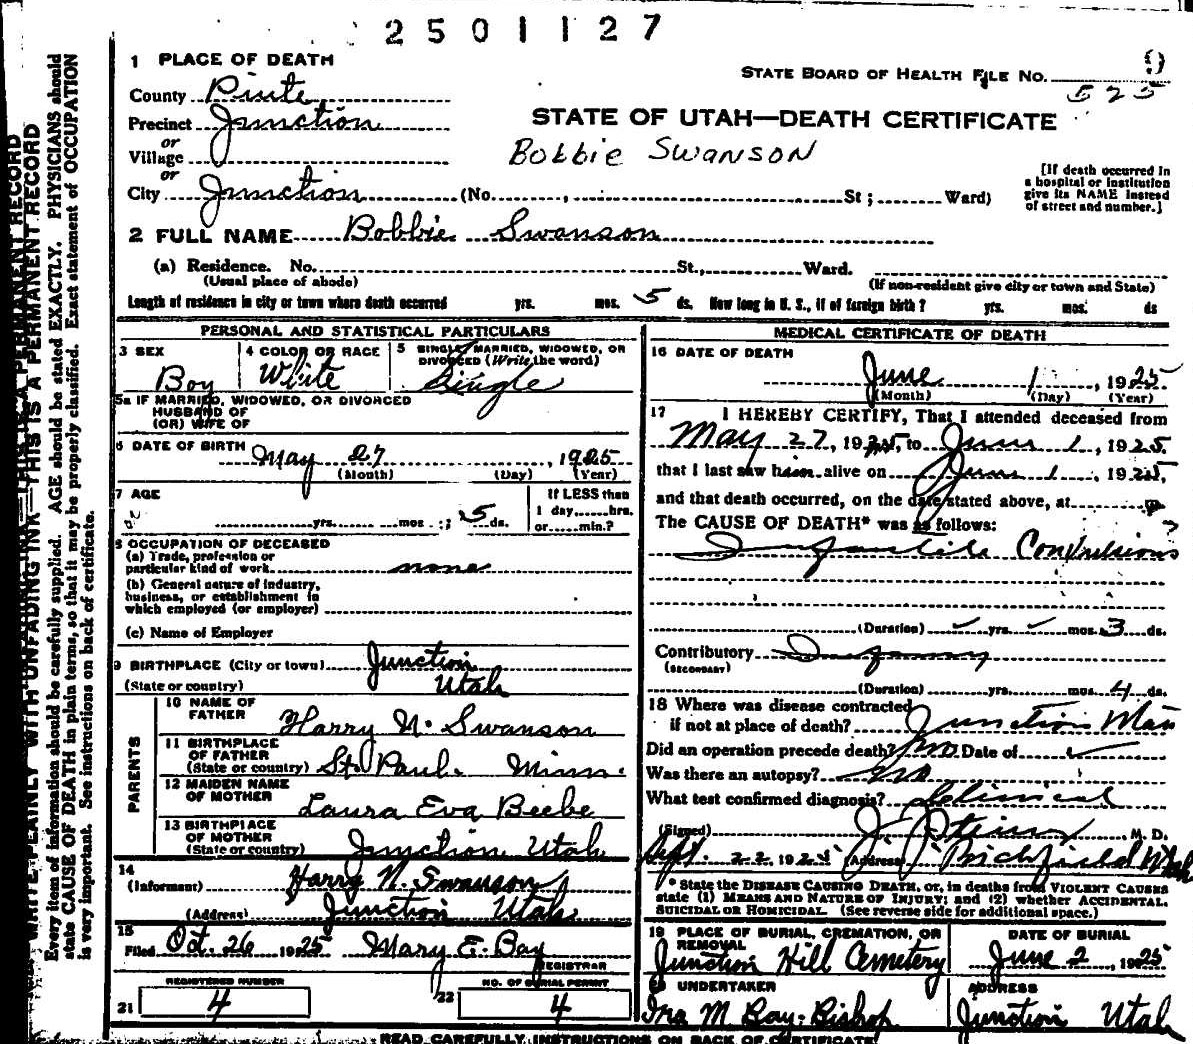 2501127
1 PLACE OF DEATH
STATE BOARD OF HEALTH FILE NO.
525
County Piute
Precinct Junction
STATE OF UTAH—DEATH CERTIFICATE
or
Village
Bobbie Swanson
or
City Junction (No. , St; Ward)
[If death occurred in
a hospital or institution
give its NAME instead
of street and number.]
2 FULL NAME Bobbie Swanson
(a) Residence. No. St., Ward.
(Usual place of abode)
(If non-resident give city or town and State)
Length of residence in city or town where death occurred yrs. mos. 5 ds. How long in U. S., if of foreign birth? yrs. mos. ds
PERSONAL AND STATISTICAL PARTICULARS
3 SEX
Boy
4 COLOR OR RACE
White
5 SINGLE, MARRIED, WIDOWED, OR
DIVORCED (Write the word)
Single
5a IF MARRIED, WIDOWED, OR DIVORCED
HUSBAND OF
(OR) WIFE OF
6 DATE OF BIRTH
May 27, 1925
(Month) (Day) (Year)
7 AGE
yrs. mos. 5 ds.
If LESS than
1 day,.....hrs.
or.....min.?
8 OCCUPATION OF DECEASED
(a) Trade, profession or
particular kind of work none
(b) General nature of industry,
business, or establishment in
which employed (or employer)
(c) Name of Employer
9 BIRTHPLACE (City or town) Junction
(State or country) Utah
PARENTS
10 NAME OF
FATHER Harry N. Swanson
11 BIRTHPLACE
OF FATHER
(State or country) St. Paul. Minn.
12 MAIDEN NAME
OF MOTHER Laura Eva Beebe
13 BIRTHPLACE
OF MOTHER
(State or country) Junction Utah
14
(Informant) Harry N. Swanson
(Address) Junction Utah
15
Filed Oct. 26 1925 Mary E. Bay
REGISTRAR
21 REGISTERED NUMBER
4
22 NO. OF BURIAL PERMIT
4
MEDICAL CERTIFICATE OF DEATH
16 DATE OF DEATH
June 1, 1925
(Month) (Day) (Year)
17 I HEREBY CERTIFY, That I attended deceased from
May 27, 1925, to June 1, 1925
that I last saw him alive on June 1, 1925,
and that death occurred, on the date stated above, at
The CAUSE OF DEATH* was as follows:
Infantile Convulsions
(Duration) yrs. mos. 3 ds.
Contributory Infancy
(SECONDARY)
(Duration) yrs. mos. 4 ds.
18 Where was disease contracted
if not at place of death? Junction
Did an operation precede death? no Date of
Was there an autopsy? no
What test confirmed diagnosis? Clinical
(Signed) M. D.
Sept. 22 192 (Address) Richfield Utah
* State the DISEASE CAUSING DEATH, or, in deaths from VIOLENT CAUSES
state (1) MEANS AND NATURE OF INJURY; and (2) whether ACCIDENTAL,
SUICIDAL OR HOMICIDAL. (See reverse side for additional space.)
19 PLACE OF BURIAL, CREMATION, OR
REMOVAL
Junction Hill Cemetery
DATE OF BURIAL
June 2, 1925
UNDERTAKER
Ira M Bay. Bishop
ADDRESS
Junction Utah
READ CAREFULLY INSTRUCTIONS ON BACK OF CERTIFICATE
WRITE PLAINLY WITH UNFADING INK—THIS IS A PERMANENT RECORD
Every item of information should be carefully supplied. AGE should be stated EXACTLY. PHYSICIANS should
state CAUSE OF DEATH in plain terms, so that it may be properly classified. Exact statement of OCCUPATION
is very important. See instructions on back of certificate.